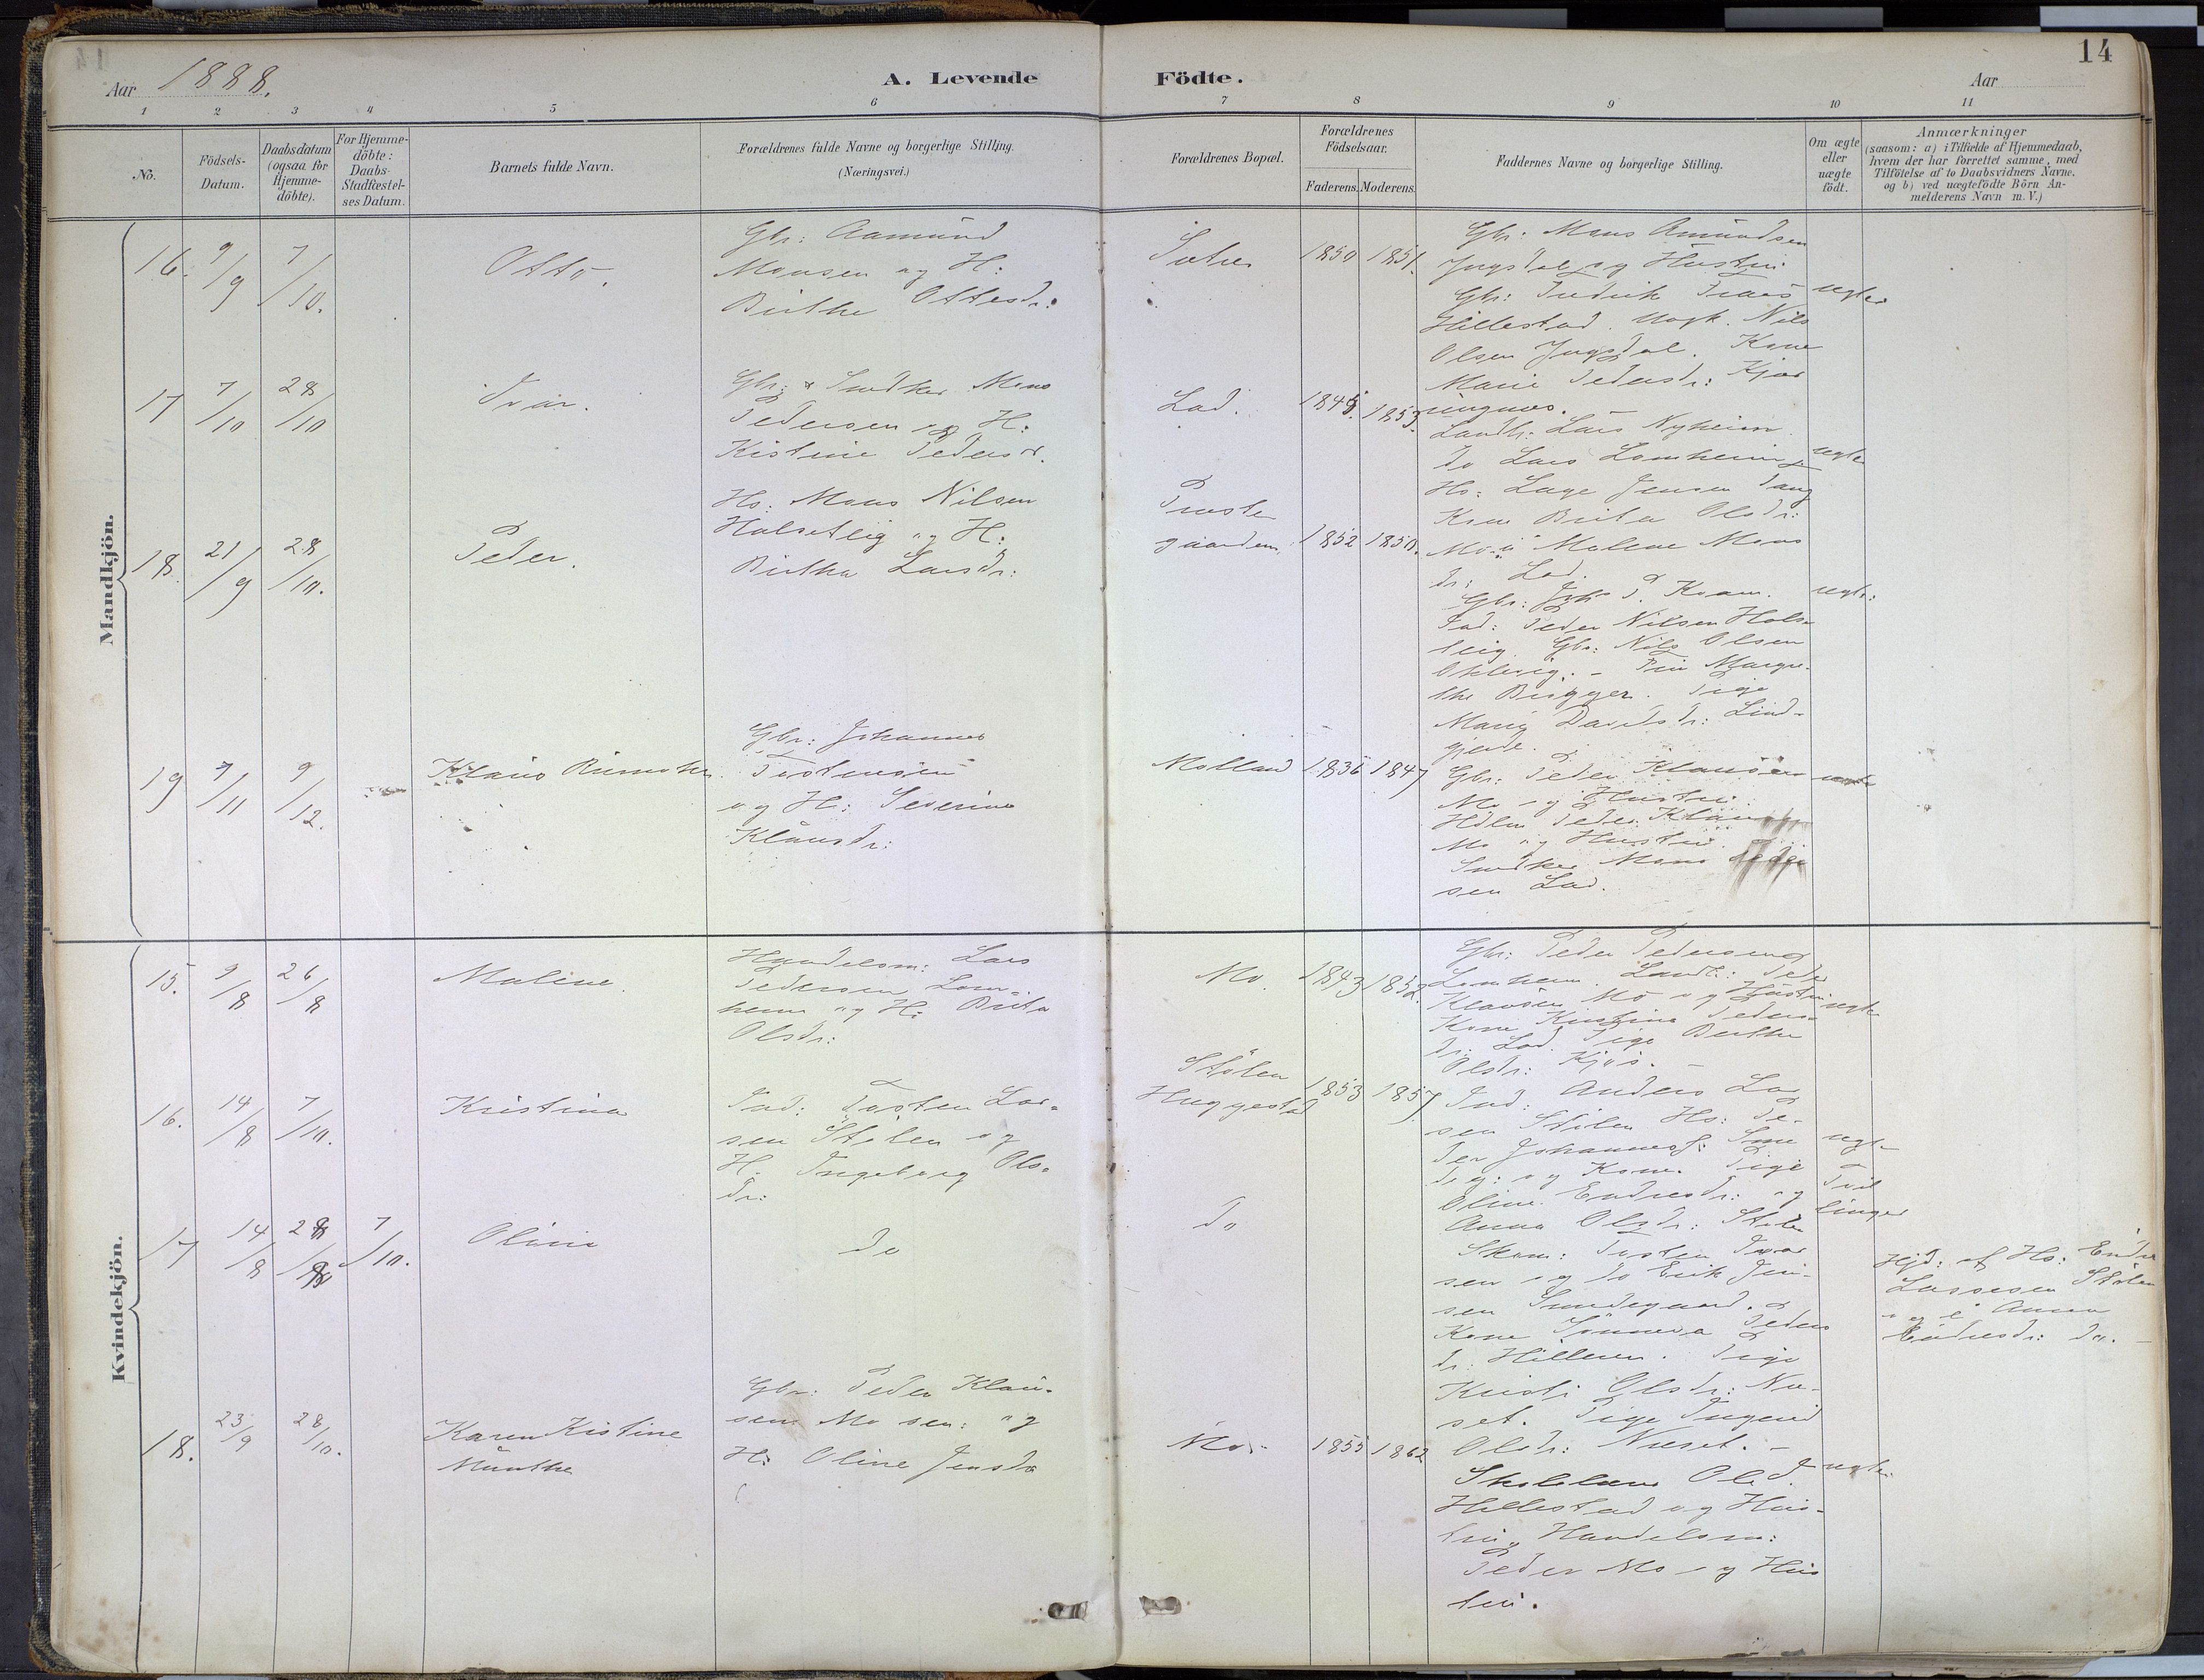 14
Aar 1888.
A. Levende Födte.
Aar
1 2 3 4 5 6 7 8 9 10 11
No.
Födsels-Datum.
Daabsdatum (ogsaa for Hjemme-döbte).
For Hjemme-döbte: Daabs-Stadfæstel-ses Datum.
Barnets fulde Navn.
Forældrenes fulde Navne og borgerlige Stilling. (Næringsvei.)
Forældrenes Bopæl.
Forældrenes Födselsaar.
Faderens. Moderens.
Faddernes Navne og borgerlige Stilling.
Om ægte eller uægte födt.
Anmærkninger
(saasom: a) i Tilfælde af Hjemmedaab,
hvem der har forrettet samme, med
Tilföielse af to Daabsvidners Navne,
og b) ved uægtefödte Börn An-
melderens Navn m. V.)
Mandkjön.
16. 9/9 7/10. Otto.
Gbr: Aamund
Monsen og H:
Birthe Ottesdr:
Sætre 1850 1851.
Gbr. Mons Amundsen
og Hustru
Gbr:
Hillestad. Ungk. Nils
Olsen Kone
Marie Pedersdr:
ægte
17 7/10 28/10 Ivar.
Gbr: & Snedker Mons
Pedersen og H:
Kistine Pedersd.
Lad. 1845. 1853.
Landh: Lars Nyheim
do Lars Lomheim
Hs: Lage Jensen
Kone Brita Olsdr:
Mo Malene Mons
dr: Lad.
ægte
18. 21/9 28/10. Peder.
Hs: Mons Nilsen
Halsetlig og H:
Birtha Larsdr:
Præste
gaarden. 1852 1850.
Gbr: P. Kvam.
Ind: Peder Nilsen Hals-
leig. Gbr: Nils Olsen
Margre-
the Pige
Marie Davidsdr: Lind-
gjerde.
ægte:
19 7/11 9/12. Klaus Rumohr.
Gbr: Johannes
Tostensen
og H: Severine
Klausdr:
Molland 1836 1847
Gbr: Peder Klausen
Mo og Hustru.
Hdlm Peder Klausen
Mo og Hustru.
Snedker Mons
sen Lad.
Kvindekjön.
15. 9/8 26/8 Maline.
Handelsm: Lars
Pedersen Lom-
heim og H: Brita
Olsdr:
Mo. 1843 1852.
Gbr: Peder Pedersen
Lomheim. Landh: Peder
Klausen Mo og Hustru
Kone Kirstine Peders-
dr: Lad. Pige Berthe
Olsdr: Kjøs. -
ægte
16. 14/8 7/10. Kristina
Ind: Tosten Lar-
sen Stølen og
H: Ingeborg Ols-
dr:
Stølen
Huggestad 1853 1857.
Ind: Anders Lar
sen Stølen Hs: Pe-
der Johanness:
og Kone. Pige
Oline Endresdr: og
Anna Olsdr: Stølen
ægte
Tvil
linger
17 14/8 28/8 7/10. Olina
do
do
Skom: Tosten Ivar
sen og do Erik Jen-
sen Sundegaard.
Kone Sønneva Peders
dr: Hilleren. Pige
Kristi Olsdr: Næ-
set. Pige Ingerid
Olsdr: Næset. -
Hjd: af Hs: Endre
Lassesen Stølen
og Anna
Endresdr: do. -
18. 23/9 28/10. Karen Kistine
Münthe
Gbr: Peder Klau-
sen Mo sen: og
H: Oline Jensdr
Mo. 1855 1862
Skolelærer Ole
Hillestad og Hus-
tru, Handelsm:
Peder Mo og Hus
tru.
ægte